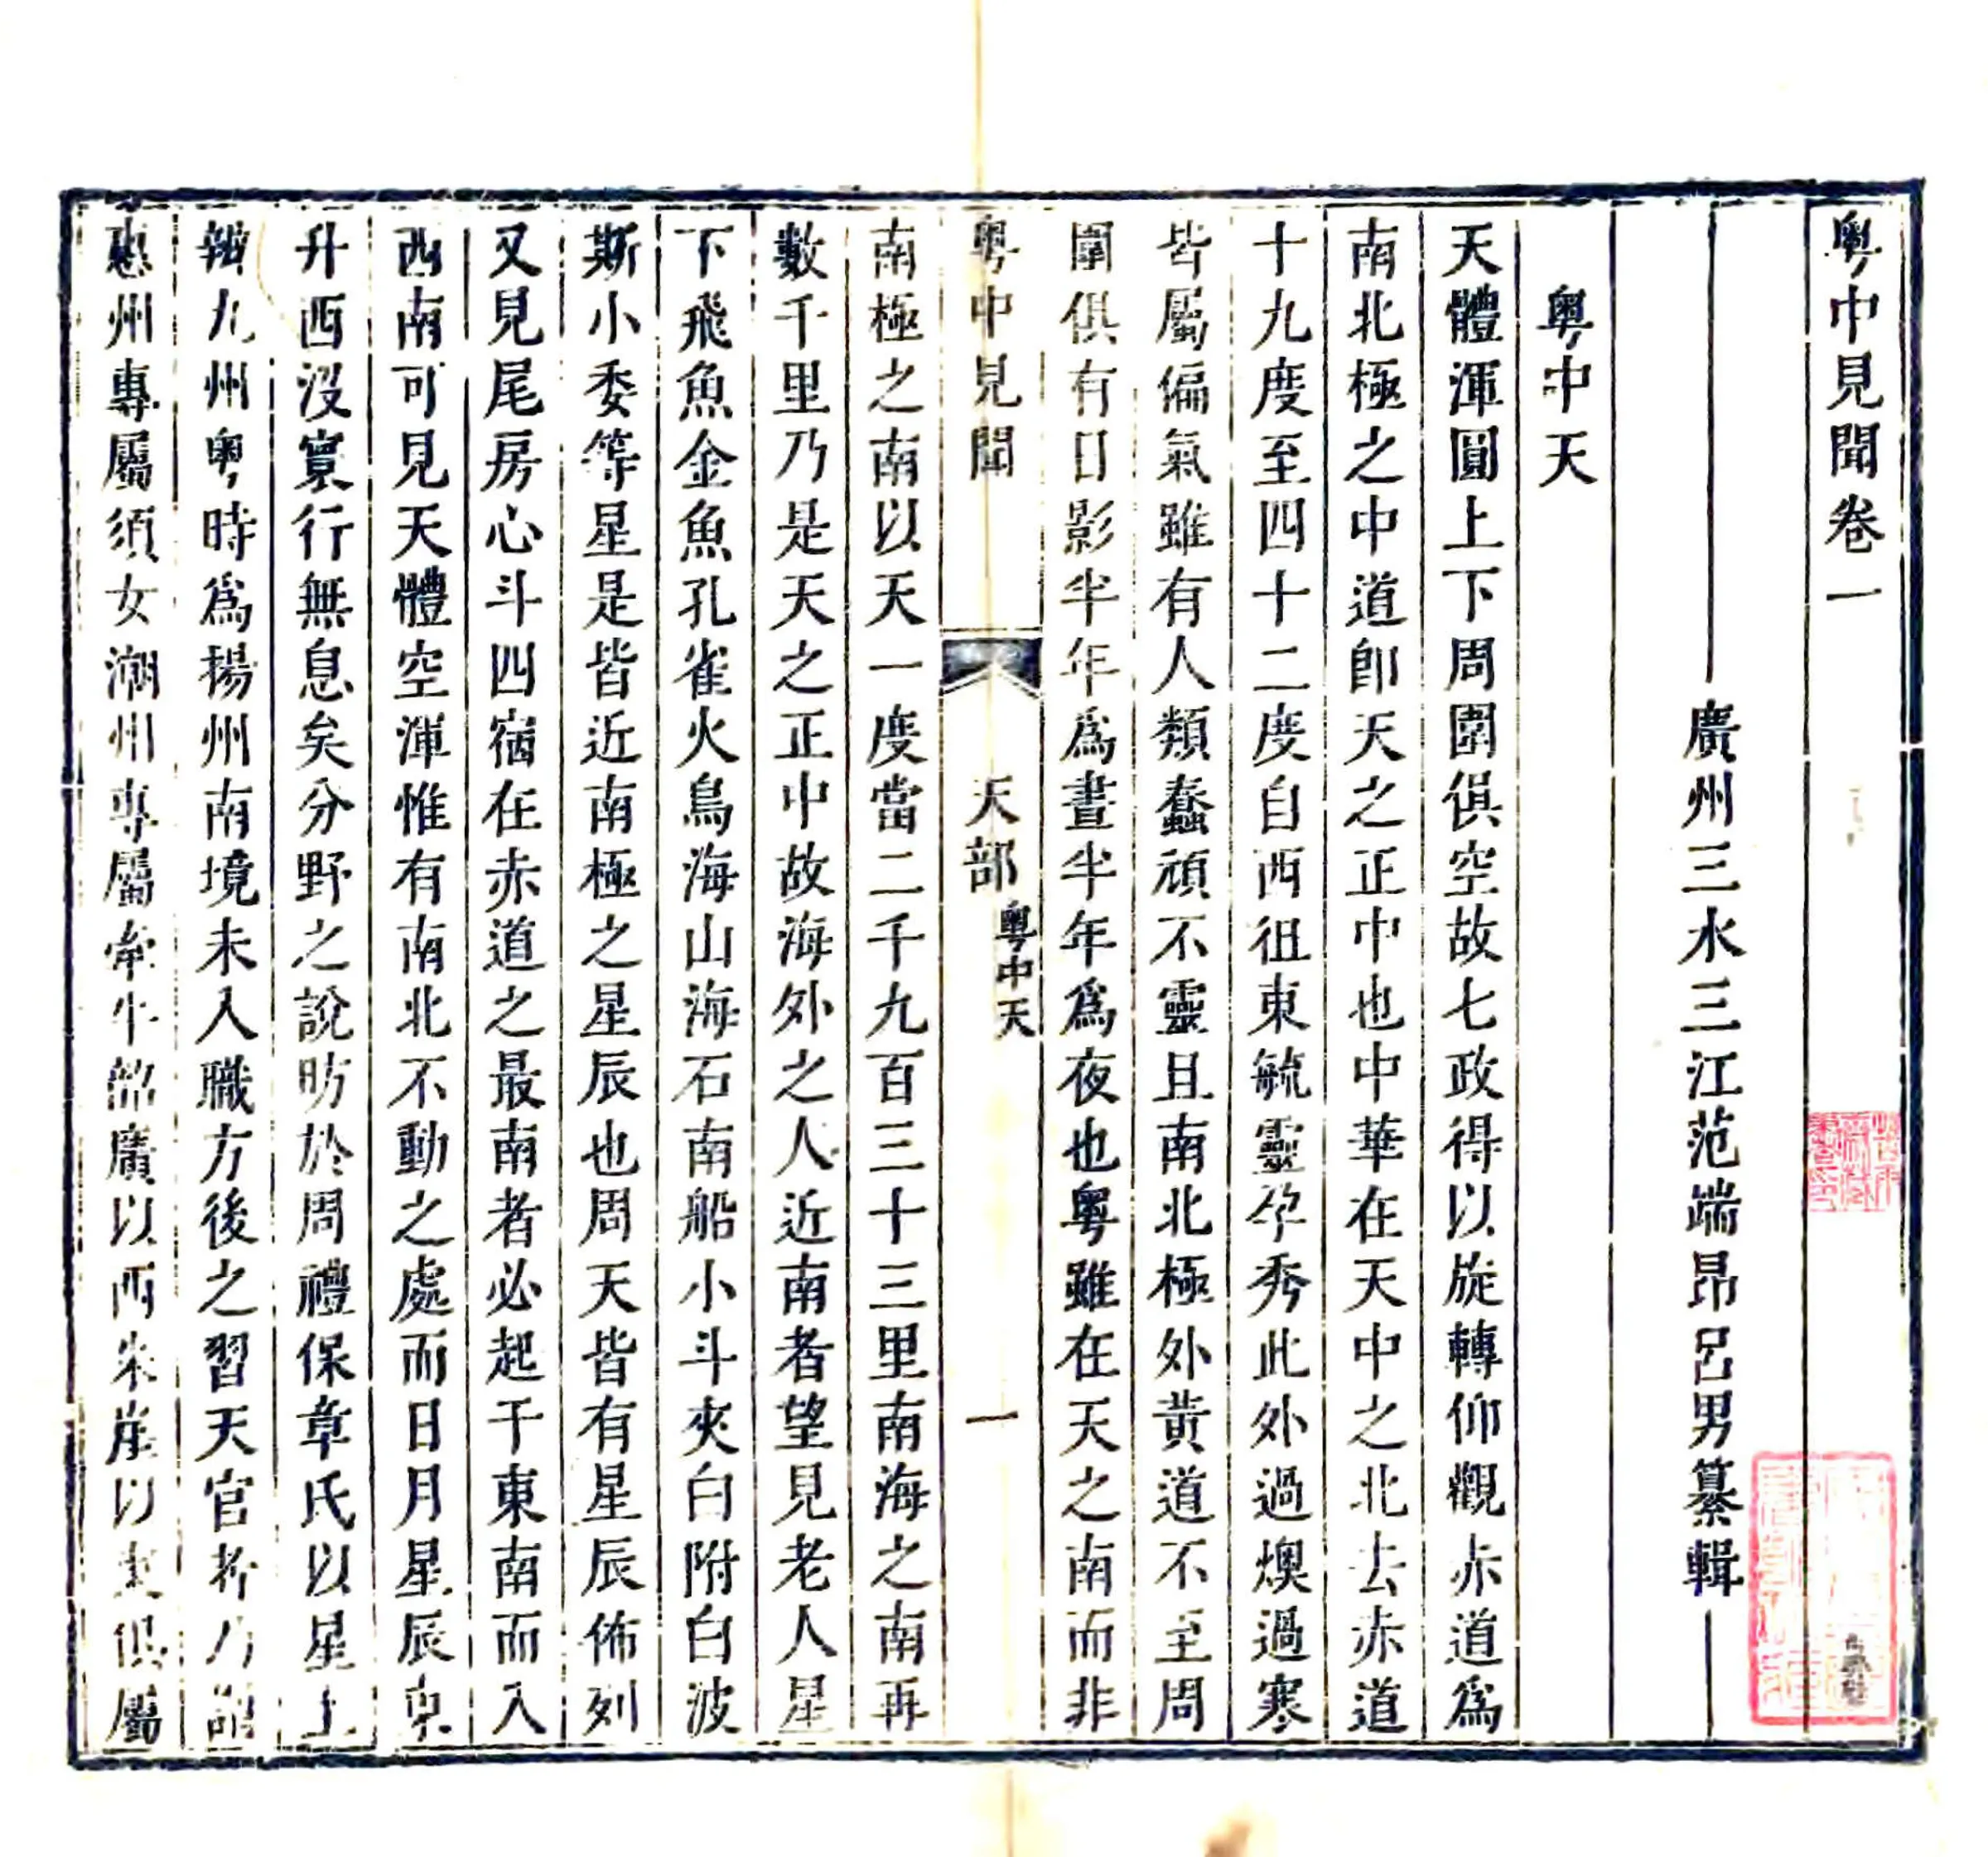 粵中見聞卷一
廣州三水三江范端昂呂男纂輯
粵中天
天體渾圓上下周圍俱空故七政得以旋轉仰觀赤道爲
南北極之中道卽天之正中也中華在天中之北去赤道
十九度至四十二度自西徂東毓靈孕秀此外過燠過寒
皆屬偏氣雖有人類蠢頑不靈且南北極外黃道不至周
圍俱有日影半年爲晝半年爲夜也粵雖在天之南而非
粵中見聞
天部
粵中天
一
南極之南以天一度當二千九百三十三里南海之南再
數千里乃是天之正中故海外之人近南者望見老人星
下飛魚金魚孔雀火鳥海山海石南船小斗夾白附白波
斯小委等星是皆近南極之星辰也周天皆有星辰佈列
又見尾房心斗四宿在赤道之最南者必起于東南而入
西南可見天體空渾惟有南北不動之處而日月星辰東
升西沒寔行無息矣分野之說昉於周禮保章氏以星土
辨九州粵時爲揚州南境未入職方後之習天官者乃謂
惠州專屬須女潮州專屬牽牛韶廣以西朱崖以東俱屬